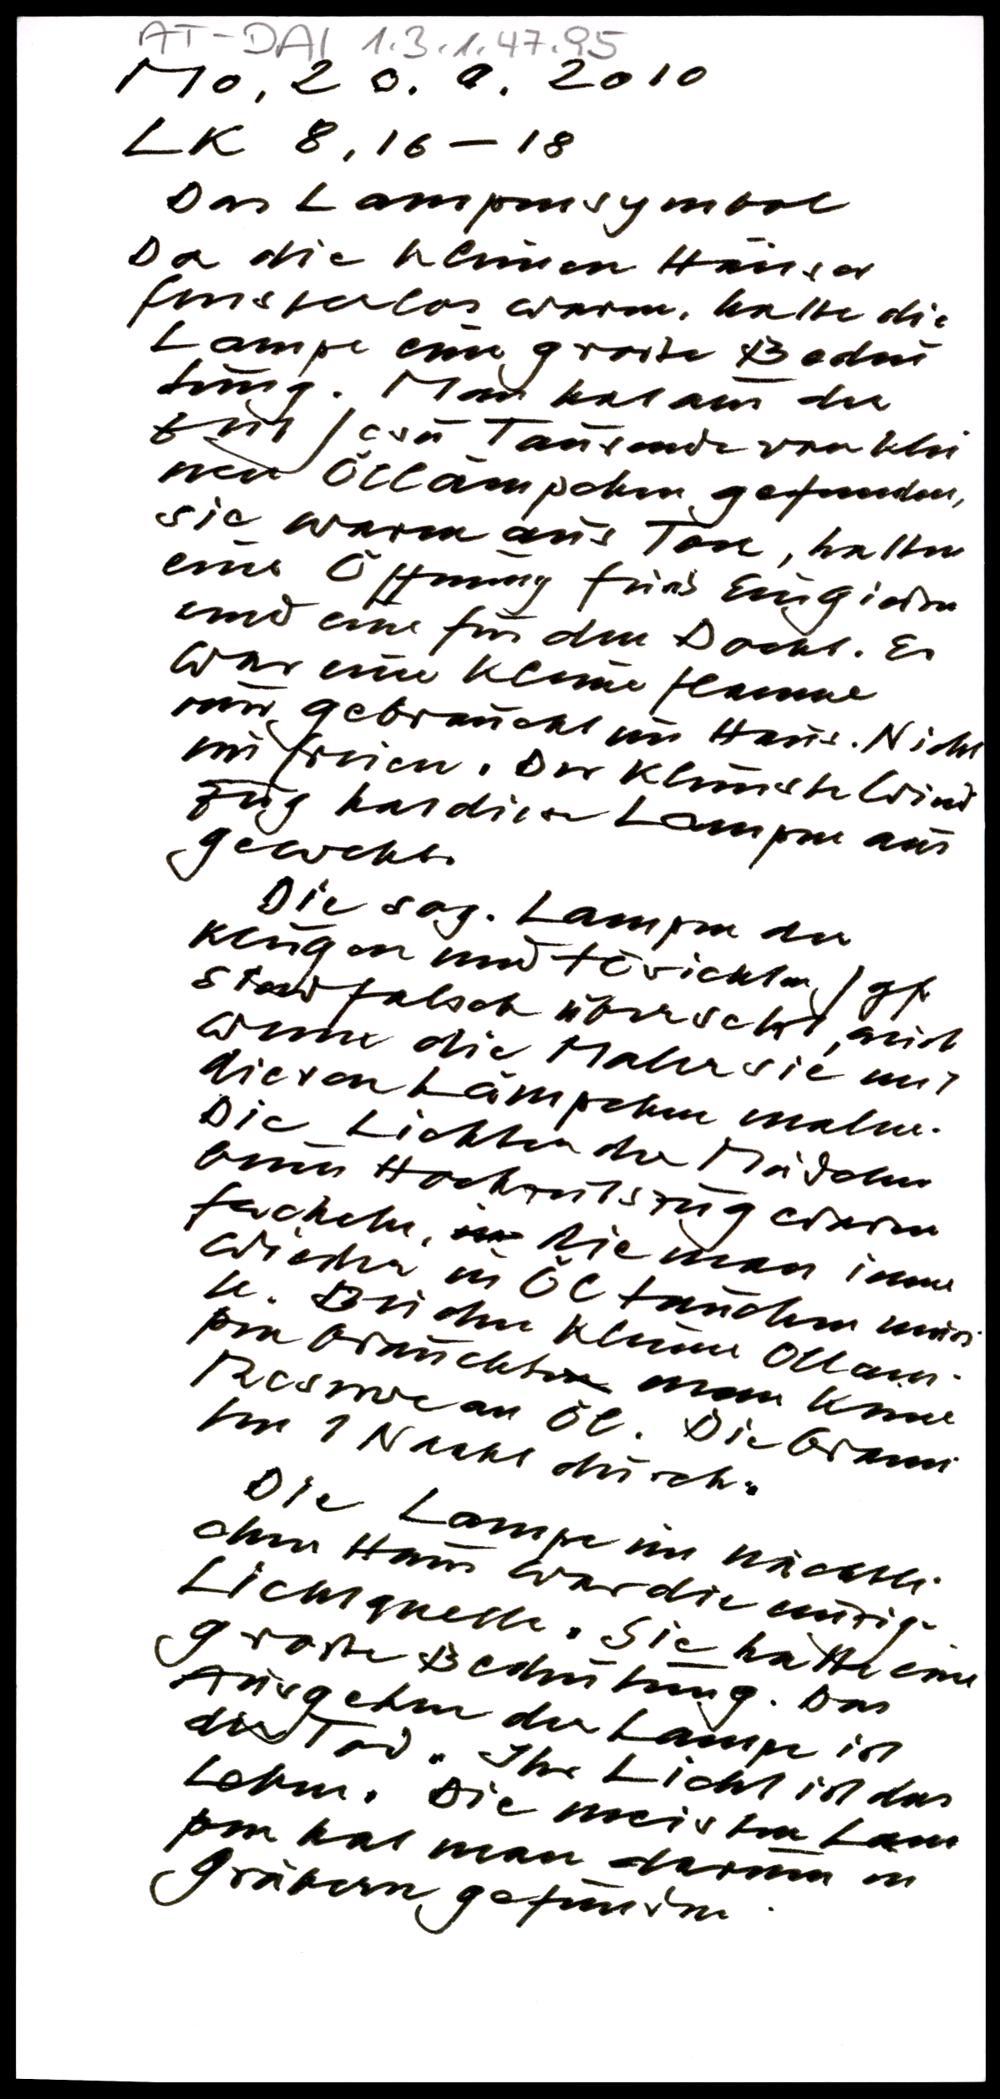 AT-DAI 1.3.1.47.95
Mo, 20. 9. 2010
LK 8,16-18
Das Lampensymbol
Da die kleinen Häuser
fensterlos waren, hatte die
Lampe eine große Bedeu
tung. Man hat aus der
Zeit Jesu Tausende von klei
nen Öllämpchen gefunden,
sie waren aus Ton, hatten
eine Öffnung fürs Eingießen
und eine für den Docht. Es
war eine kleine Flamme
nur gebraucht im Haus. Nicht
im freien. Der kleinste Wind
zug hat diese Lampen aus
geweht.
Die sog. Lampen der
klugen und törichten Jgfr.
sind falsch übersetzt, auch
wenn die Maler sie mit
diesen Lämpchen malen.
Die Lichter der Mädchen
beim Hochzeitszug waren
Fackeln, die man immer
wieder in Öl tauchen muss
te. Bei den kleinen Öllam-
pen brauchte man keine
Reserve an Öl. Die brann
ten 1 Nacht durch.
Die Lampe im nächtli
chen Haus war die einzige
Lichtquelle. Sie hatte eine
große Bedeutung. Das
Ausgehen der Lampe ist
der Tod. Ihr Licht ist das
Leben. Die meisten Lam
pen hat man darum in
Gräbern gefunden.